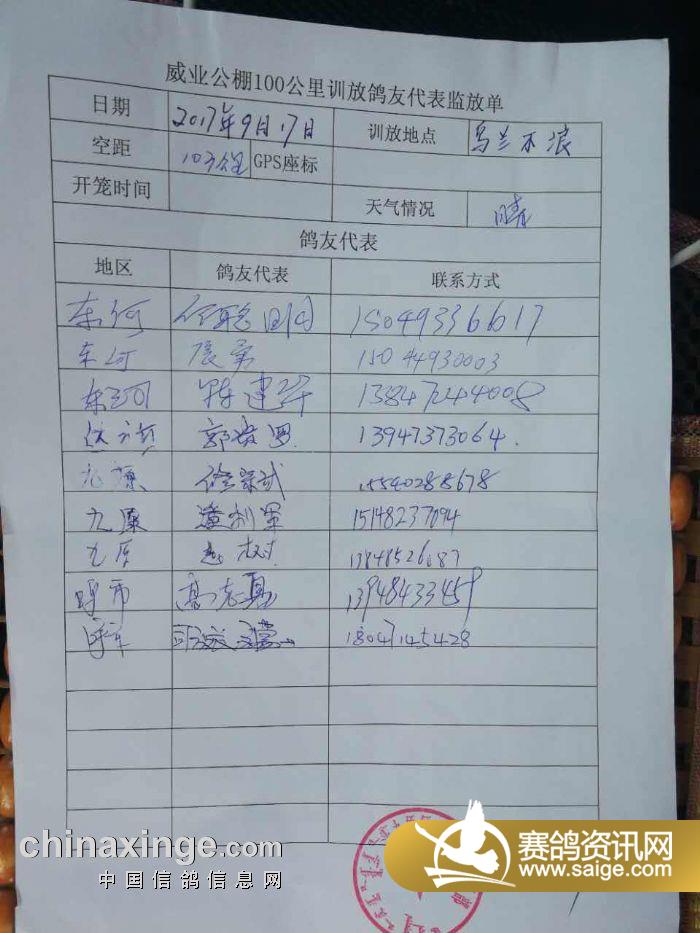 威业公棚100公里训放鸽友代表监放单
日期 2017年9月17日 训放地点 乌兰不浪
空距 103公里 GPS座标
开笼时间 天气情况 晴
鸽友代表
地区 鸽友代表 联系方式
东河 任聪 15049336617
东河 展勇 15044930003
东河 陈建军 13847244008
达旗 郭俊 13947373064.
九原 徐宗武 15540288678
九原 潘利军 15148237094
九原 赵树 13848526087
呼市 高志真 13948433459
呼市 18047145428
chinaxinge.com
中国信鸽信息网
赛鸽资讯网
www.saige.com